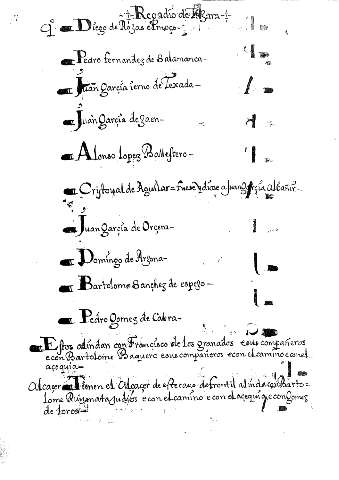 Regadio de Arjona
Diego de Rojas el moço
Pedro fernandez de Salamanca
Juan garcia ierno de Texada
Juan garcia de Jaen
Alonso Lopez Ballestero
Cristoval de Aguilar = fuese y diose a Juan garcia Albañir
Juan garcia de Orcera
Domingo de Arjona
Bartolome Sanches de espejo
Pedro Gomes de Cabra
Estos alindan con Francisco de los granados e sus compañeros
e con Bartolome Baquero e sus compañeros e con el camino e con el
açequia
Alcaçer Tienen el Alcaçer de este cavo de frontil alinda con Barto=
lome e con el camino e con el açequia e con Gomes
de